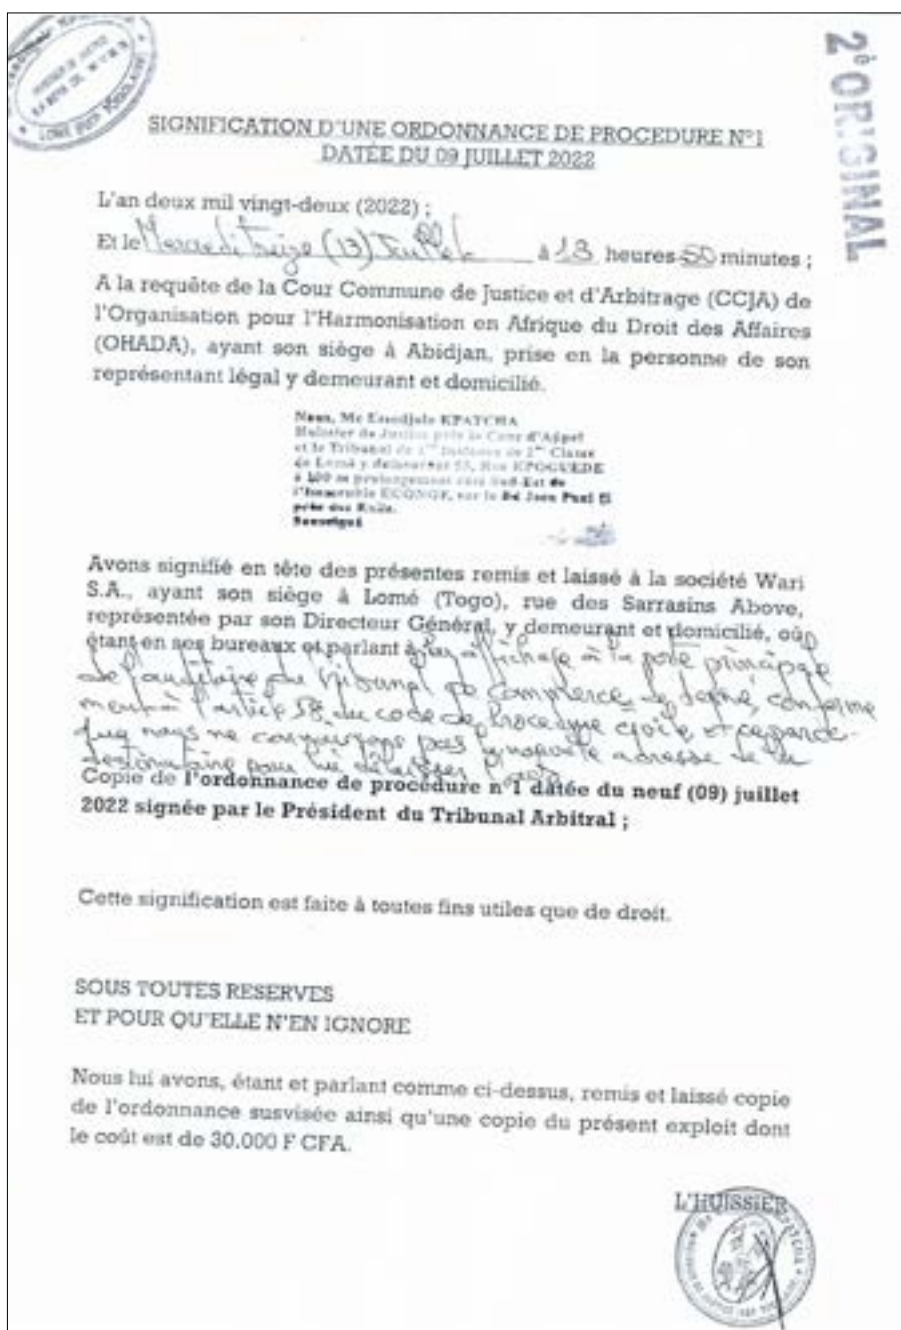 2è ORIGINAL
LOME
SIGNIFICATION D'UNE ORDONNANCE DE PROCEDURE N°1
DATÉE DU 09 JUILLET 2022
L'an deux mil vingt-deux (2022) ;
Et le Mercredi treize (13) Juillet à 13 heures 50 minutes ;
A la requête de la Cour Commune de Justice et d'Arbitrage (CCJA) de
l'Organisation pour l'Harmonisation en Afrique du Droit des Affaires
(OHADA), ayant son siège à Abidjan, prise en la personne de son
représentant légal y demeurant et domicilié.
Nous, Me KPATCHA
Huissier de Justice près la Cour d'Appel
et le Tribunal de 1ère Instance de 1ère Classe
de Lomé y demeurant 55, Rue KPOGUEDE
à 100 m prolongement côté Sud-Est de
l'Honorable sur le Bd Jean Paul II
près des Rails.
Soussigné
Avons signifié en tête des présentes remis et laissé à la société Wari
S.A., ayant son siège à Lomé (Togo), rue des Sarrasins Above,
représentée par son Directeur Général, y demeurant et domicilié, où
étant en ses bureaux et parlant à par affichage à la porte principale
de l'auditoire du Tribunal de Commerce de Lomé, conformé
ment à l'article 58 du code de Procédure civile et
que nous ne connaissons pas adresse de la
destinataire pour lui délaisser
Copie de l'ordonnance de procédure n°1 datée du neuf (09) juillet
2022 signée par le Président du Tribunal Arbitral ;
Cette signification est faite à toutes fins utiles que de droit.
SOUS TOUTES RESERVES
ET POUR QU'ELLE N'EN IGNORE
Nous lui avons, étant et parlant comme ci-dessus, remis et laissé copie
de l'ordonnance susvisée ainsi qu'une copie du présent exploit dont
le coût est de 30.000 F CFA.
L'HUISSIER